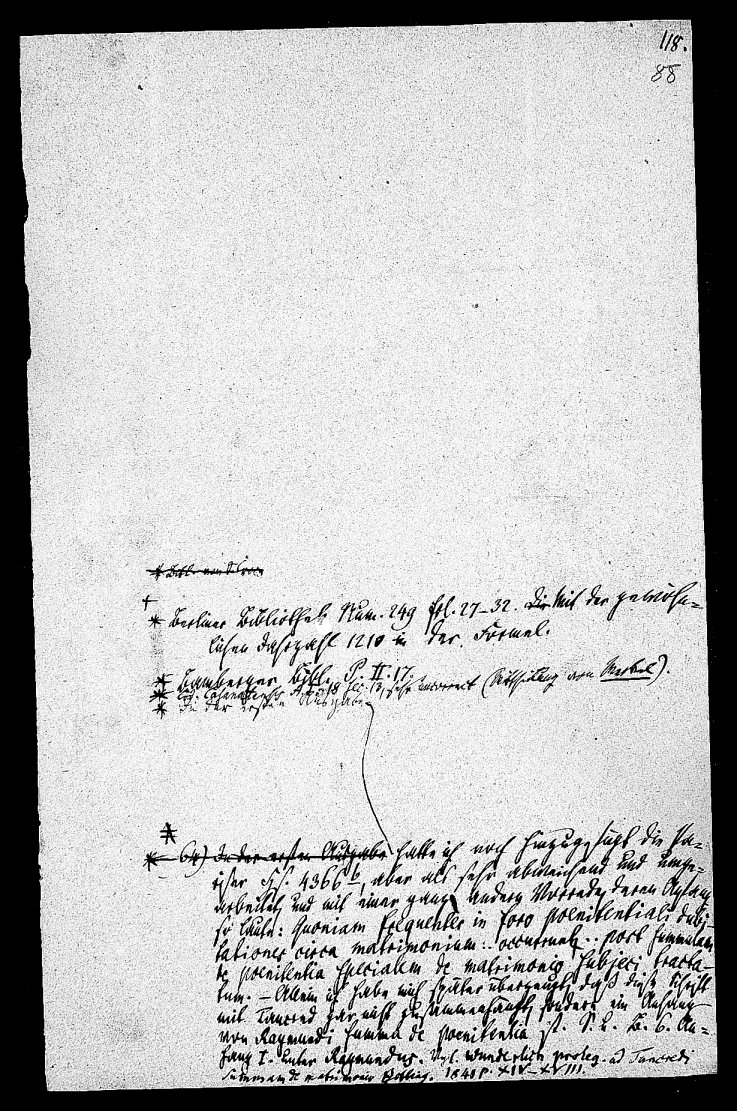 118.
88
* Berliner Bibliothek Num. 249 fol. 27-32. Die Mit der gewöhn=
lichen Jahrzahl 1210 in der Formel.
* Bamberger Bibl. P. II. 17.
sehr incorrect (Mittheilung von Merkel).
* In der ersten Ausgabe
* 64) In der ersten Ausgabe hatte ich noch hinzugefügt die Pa=
riser Hs. 4366 b, aber als sehr abweichend und umge=
arbeitet, und mit einer ganz andern Vorrede, deren Anfang
so laute: Quoniam frequenter in foro poenitentiali dubi=
tationes circa matrimonium .. occurrunt .. post summulam
de poenitentia specialem de matrimonio subjeci tracta=
tum. — Allein ich habe mich später überzeugt, daß diese Schrift
mit Tancred gar nicht zusammenhängt, sondern ein Anhang
von Raymundi summa de poenitentia ist. S. u. B. 6. An=
hang I. unter Raymundus. Vgl. Wunderlich proleg. ad Tancredi
summam de matrimonio Götting. 1841 p. XIV-XVIII.